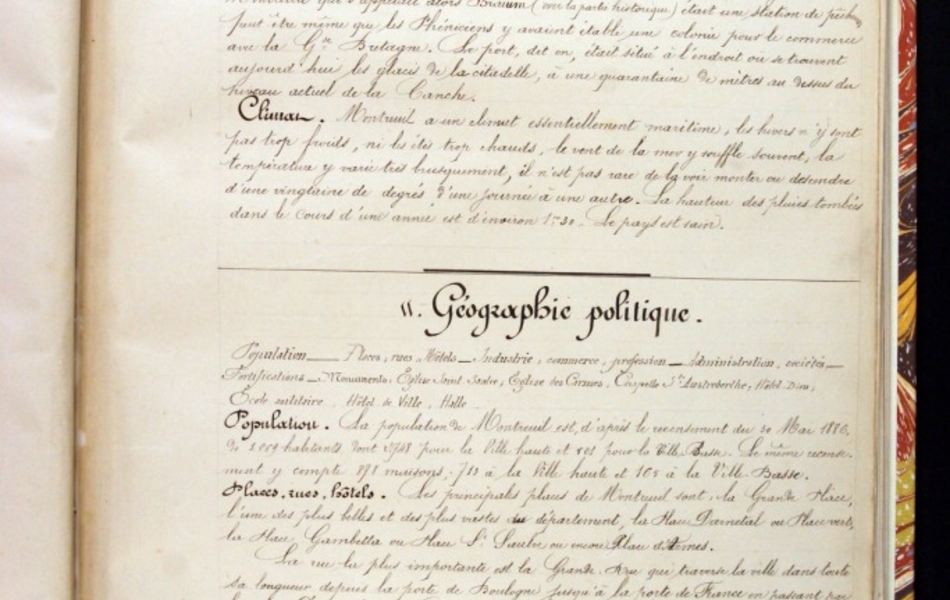 qui s'appelait alors Braium (voir la partie historique) était une station de pêcheurs
peut être même que les Phéniciens y avaient établi une colonie pour le commerce
avec la Gde Bretagne. Le port, dit on, était situé à l'endroit où se trouvent
aujourd'hui les glacis de la citadelle, à une quarantaine de mètres au dessus du
niveau actuel de la Canche.
Climat. Montreuil a un climat essentiellement maritime, les hivers n'y sont
pas trop froids, ni les étés trop chauds, le vent de la mer y souffle souvent, la
température y varie très brusquement, il n'est pas rare de la voir monter ou descendre
d'une vingtaine de degrés d'une journée à une autre. La hauteur des pluies tombées
dans le cours d'une année est d'environ 1m 30. Le pays est sain.
II. Géographie politique.
Population — Places, rues, Hôtels — Industrie, commerce, profession — Administration, sociétés —
Fortifications — Monuments: Eglise Saint Saulve, Eglise des Carmes, Chapelle Ste Austreberthe, Hôtel-Dieu,
Ecole militaire, Hôtel de Ville, Halle.
Population. La population de Montreuil est, d'après le recensement du 30 Mai 1886,
de habitants, dont 2748 pour la Ville haute et pour la Ville-Basse. Le même recense-
ment y compte 878 maisons, 713 à la Ville haute et 165 à la Ville-Basse.
Places, rues, hôtels. Les principales places de Montreuil sont: la Grande Place,
l'une des plus belles et des plus vastes du département, la Place Darnetal ou Place verte,
la Place Gambetta ou Place St Saulve ou encore Place d'Armes.
La rue la plus importante est la Grande Rue qui traverse la ville dans toute
sa longueur depuis la porte de Boulogne jusqu'à la porte de France en passant par